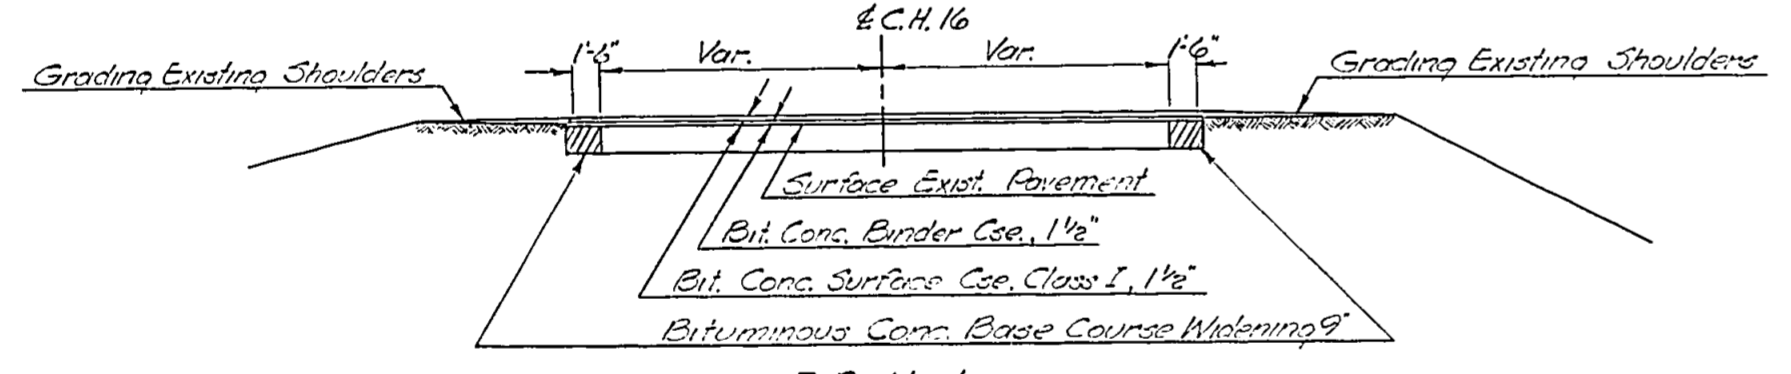 ℄ C.H. 16
1'-6" Var. Var. 1'-6"
Grading Existing Shoulders Grading Existing Shoulders
Surface Exist. Pavement
Bit. Conc. Binder Cse., 1 1/2"
Bit. Conc. Surface Cse. Class I, 1 1/2"
Bituminous Conc. Base Course Widening 9"